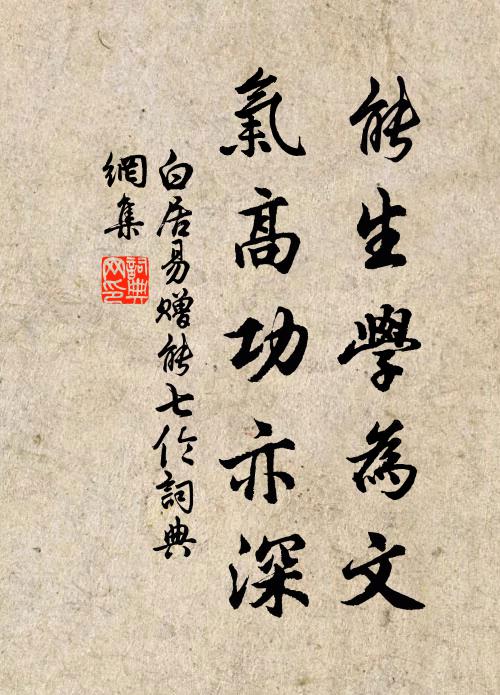 能生學為文
氣高功亦深
白居易贈能七倫詞典
網集
詞典網印